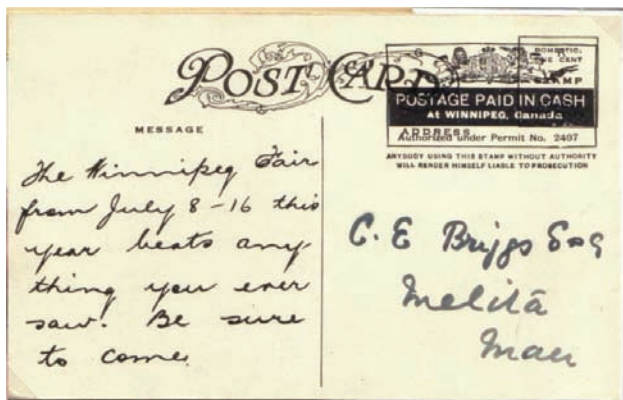 POST CARD
DOMESTIC:
ONE CENT
STAMP
POSTAGE PAID IN CASH
At WINNIPEG, Canada
ADDRESS
Authorized under Permit No. 2497
ANYBODY USING THIS STAMP WITHOUT AUTHORITY
WILL RENDER HIMSELF LIABLE TO PROSECUTION
MESSAGE
The Winnipeg Fair
from July 8-16 this
year beats any
thing you ever
saw. Be sure
to come.
C. E Briggs Esq
Melita
Man